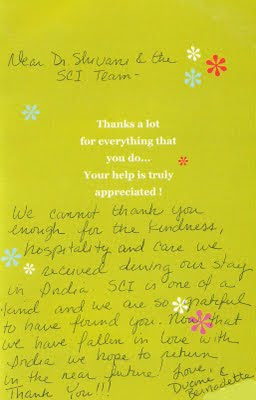 Dear Dr. Shivani & the
SCI Team-
Thanks a lot
for everything that
you do...
Your help is truly
appreciated !
We cannot thank you
enough for the kindness,
hospitality and care we
received during our stay
in India. SCI is one of a
kind and we are so grateful
to have found you. Now that
we have fallen in love with
India we hope to return
in the near future.
Thank You!!!
Love,
Duane &
Bernadette